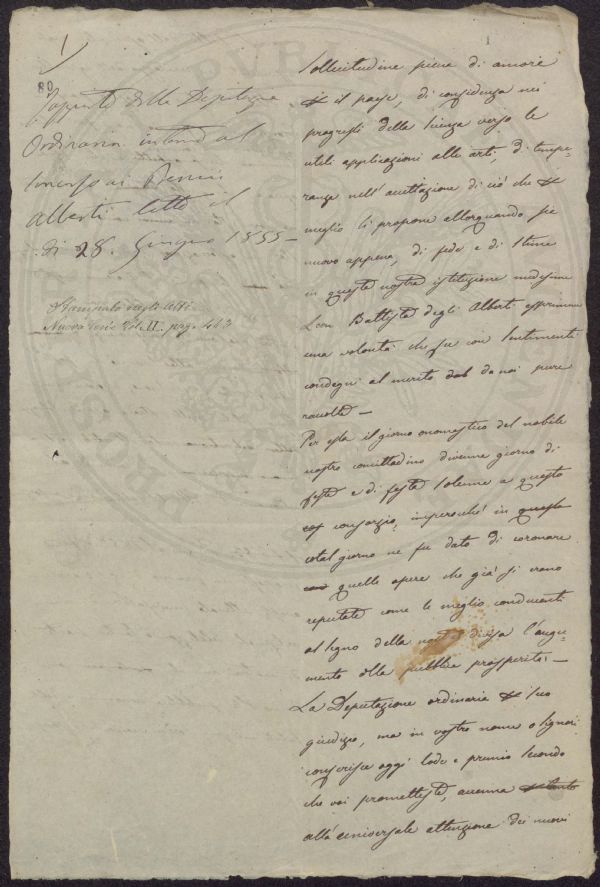 1
1
80
Rapporto della Deputazione
Ordinaria intorno al
Concorso ai Premii
Alberti letto il
di 28. Giugno 1855 -
Stampato negli Atti
Nuova Serie Vol. II. pag. 443
Sollecitudine piena di amore
il paese, di confidenza nei
progressi della scienza verso le
utili applicazioni alle arti, di tempe-
ranza nell'accettazione di ciò che
meglio si propone allorquando sia
nuovo appena, di fede e di stima
in questa nostra istituzione medesima
Leon Battista degli Alberti esprimeva
una volontà che fu con sentimenti
condegni al merito da noi pure
raccolta —
Per essa il giorno onomastico del nobile
nostro concittadino divenne giorno di
festa e di festa solenne a questo
consorzio, imperocchè in
cotal giorno ne fu dato di coronare
quelle opere che già si erano
reputate come le meglio conducenti
al segno della nostra divisa l'augu-
mento della pubblica prosperità: —
La Deputazione ordinaria suo
giudizio, ma in vostro nome o Signori
conferisce oggi lode e premio secondo
che voi prometteste, accenna
all'universale attenzione dei nuovi